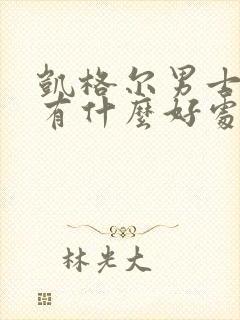 凯格尔男士
有什麼好處
林光大